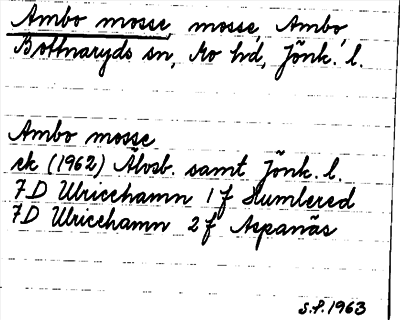 Ambo mosse, mosse, Ambo,
Bottnaryds sn, Mo hd, Jönk. l.
Ambo mosse
ek (1962) Älvsb. samt Jönk. l.
7D Ulricehamn 1f Humlered
7D Ulricehamn 2f Aspanäs
S.F. 1963